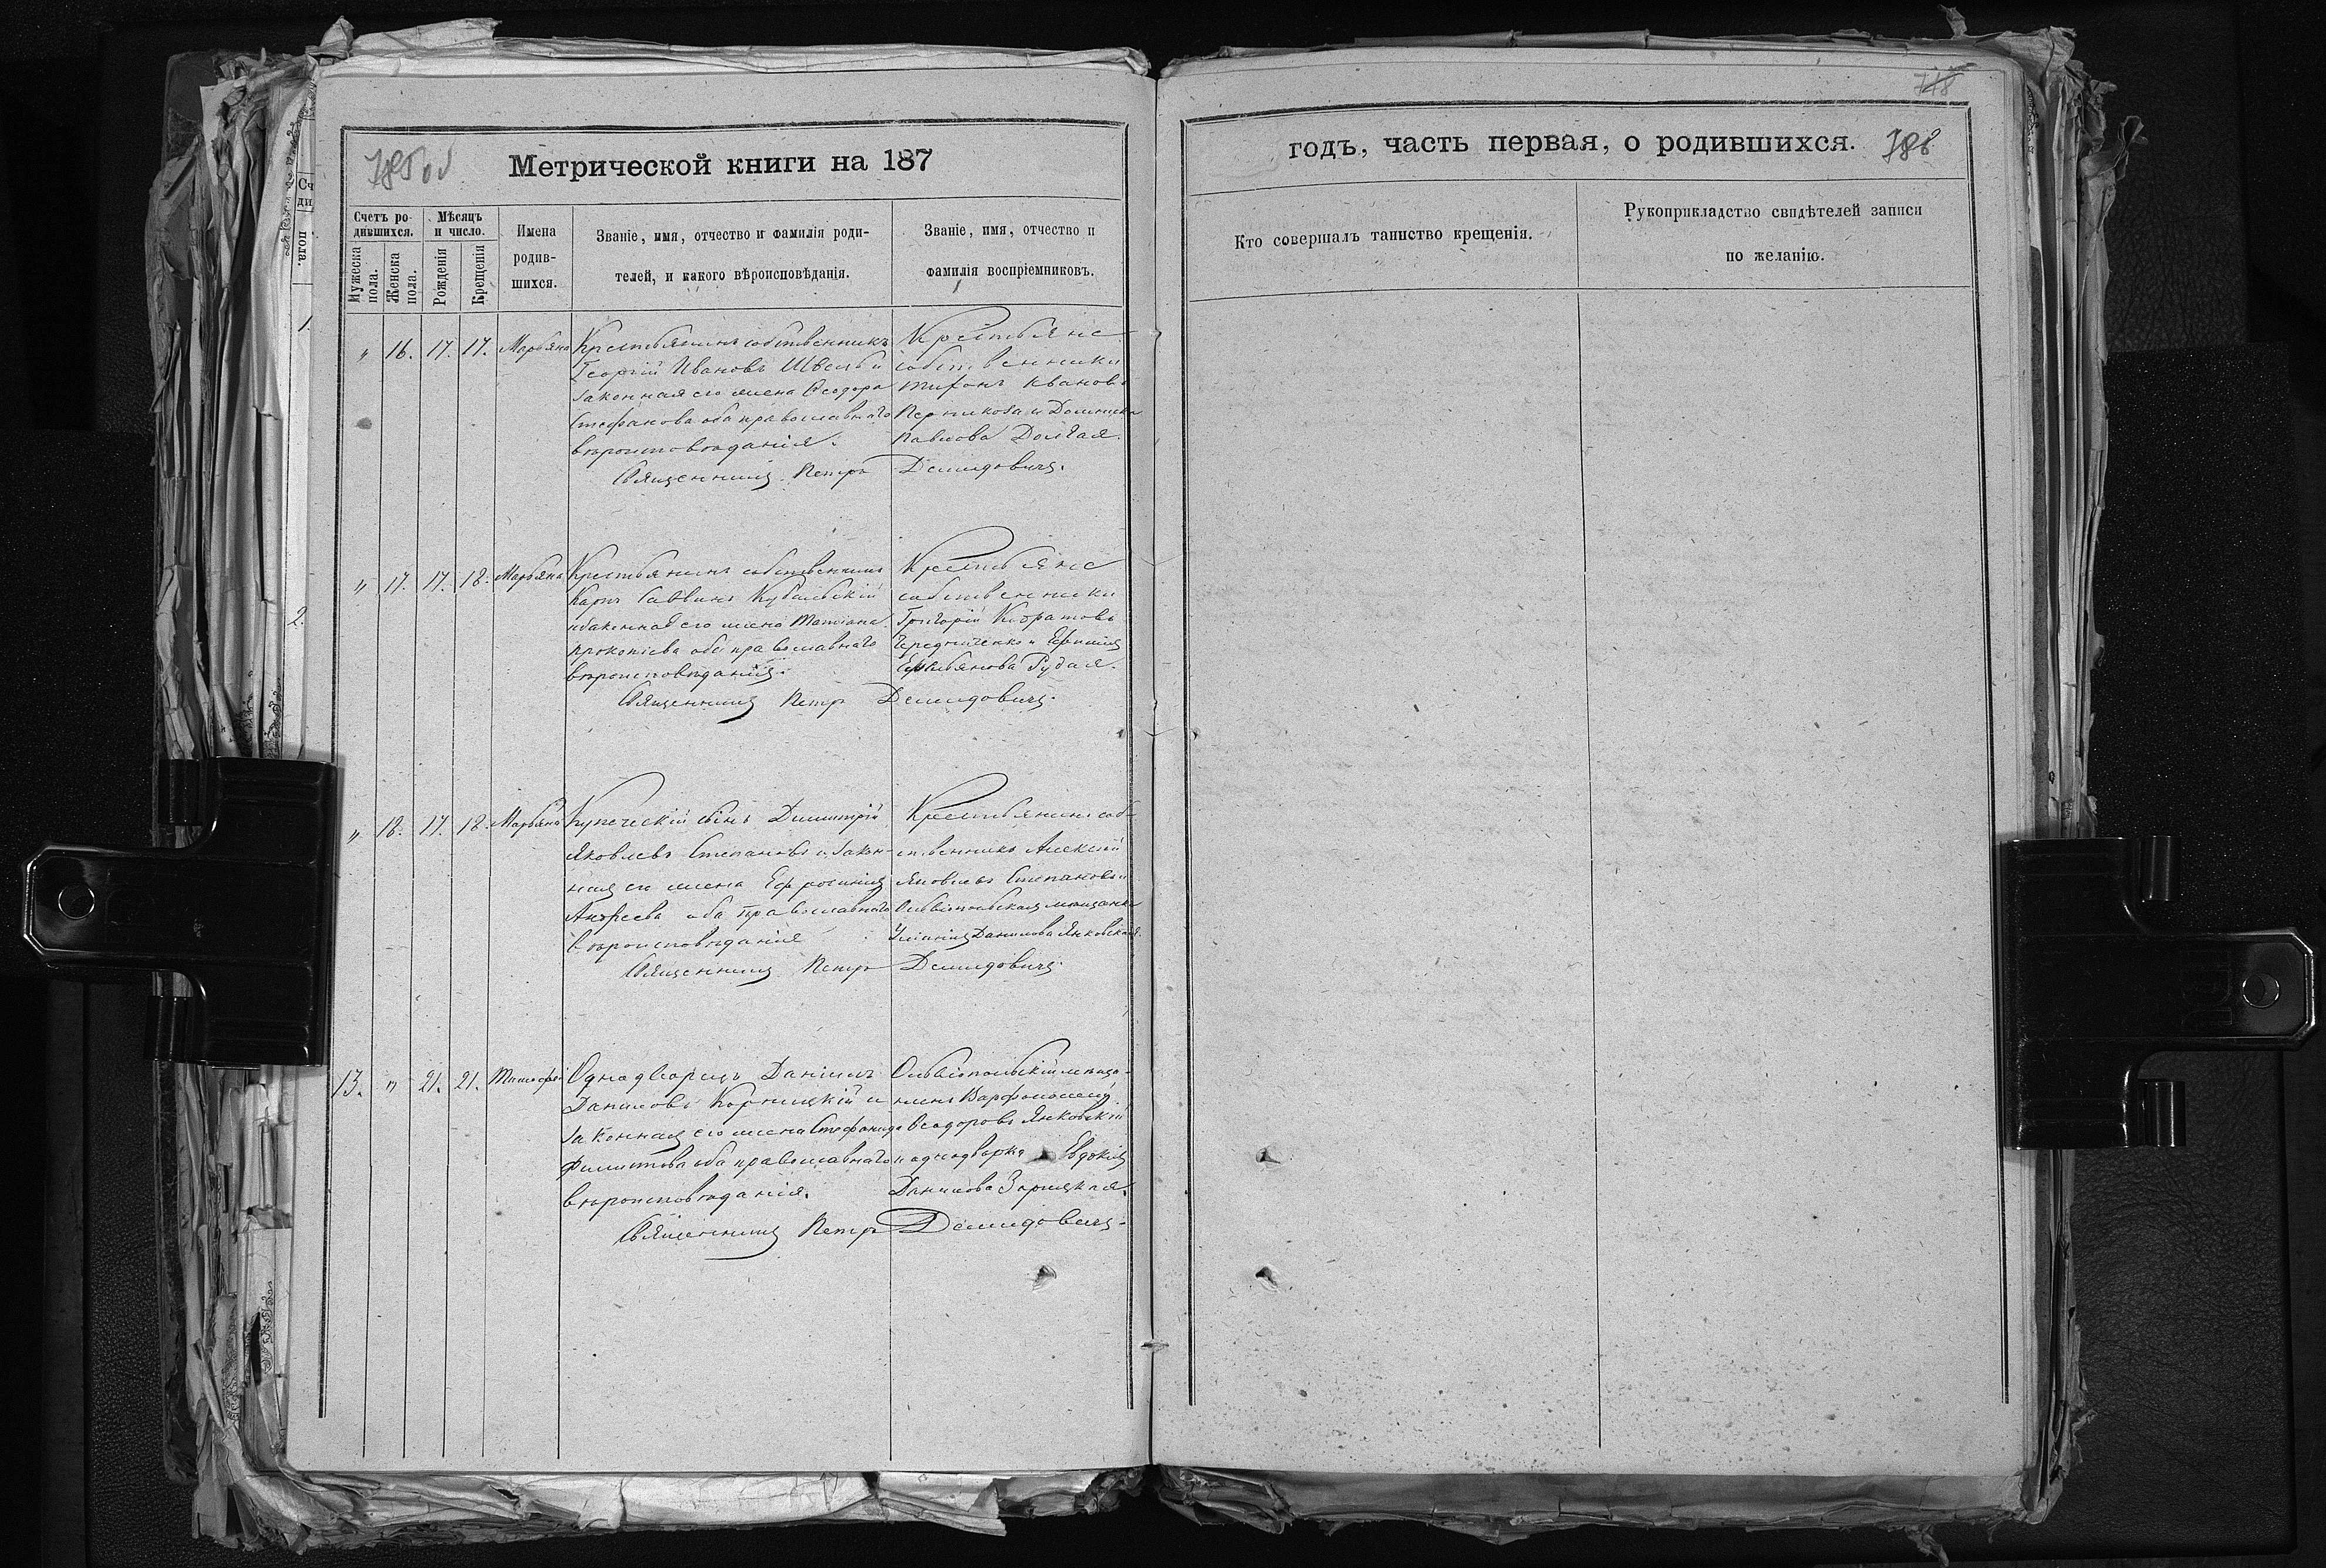 Метрической книги на 187
годъ, часть первая, о родившихся.
Счетъ родившихся.
Мужеска пола.
Женска пола.
Мѣсяцъ и число.
Рожденія
Крещенія
Имена родившихся.
Званіе, имя, отчество и фамилія родителей, и какого вѣроисповѣданія.
Званіе, имя, отчество и фамилія воспріемниковъ.
Кто совершалъ таинство крещенія.
Рукоприкладство свидѣтелей записи
по желанію.
" 16. 17. 17. Марьяна Крестьянинъ собственникъ Крестьяне
Георгій Ивановъ Швецъ и собственники
законная его жена Ѳеодора Тихонъ Ивановъ
Стефанова оба православнаго и Домникія
вѣроисповѣданія. Павлова Долгая.
Священникъ Петръ Демидовичъ.
" 17. 17. 18. Марьяна Крестьянинъ собственникъ Крестьяне
Карпъ Саввинъ собственники
и законная его жена Татіана Григорій
Прокопіева оба православнаго Чередниченко и Ефимія
вѣроисповѣданія. Емельянова Рудая.
Священникъ Петръ Демидовичъ.
" 18. 17. 18. Марьяна Купеческій сынъ Димитрій Крестьянинъ соб-
Яковлевъ Степановъ и закон- ственникъ Алексій
ная его жена Ефросинія Яковлевъ Степановъ и
Андреева оба православнаго Ольвіопольская мѣщанка
вѣроисповѣданія Уліанія Данилова Янковская.
Священникъ Петръ Демидовичъ.
13. " 21. 21. Тимофей Однодворецъ Даніилъ Ольвіопольскій мѣща-
Даниловъ Корницкій и нинъ Варфоломей
законная его жена Стефанида Ѳеодоровъ Янковскій
Филиппова оба православнаго и однодворка Евдокія
вѣроисповѣданія. Данилова Зарицкая.
Священникъ Петръ Демидовичъ.